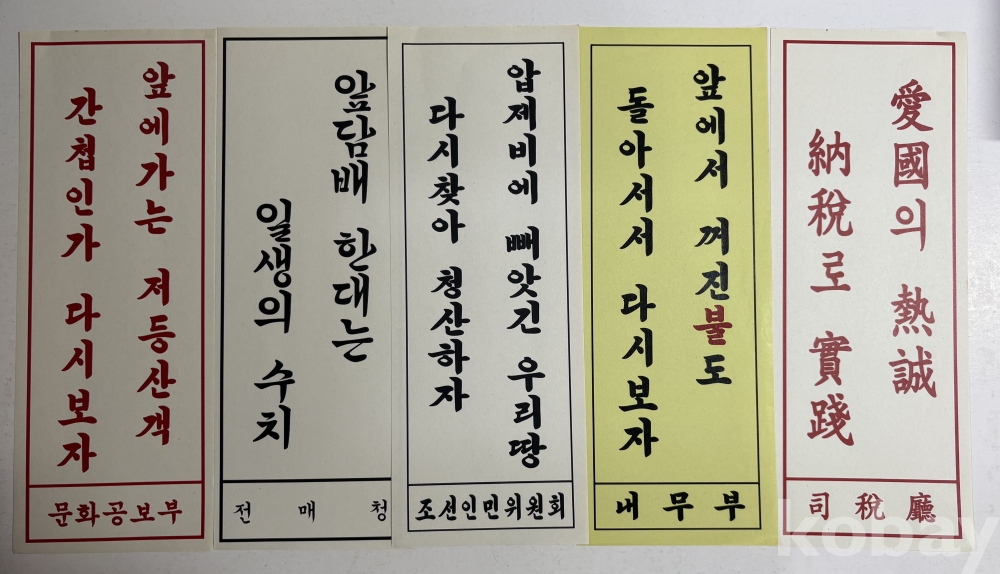 앞에가는 저등산객
간첩인가 다시보자
문화공보부
앞담배 한대는
일생의 수치
전매청
압제비에 빼앗긴 우리땅
다시찾아 청산하자
조선인민위원회
앞에서 꺼진불도
돌아서서 다시보자
내무부
愛國의 熱誠
納稅로 實踐
司稅廳
kobay